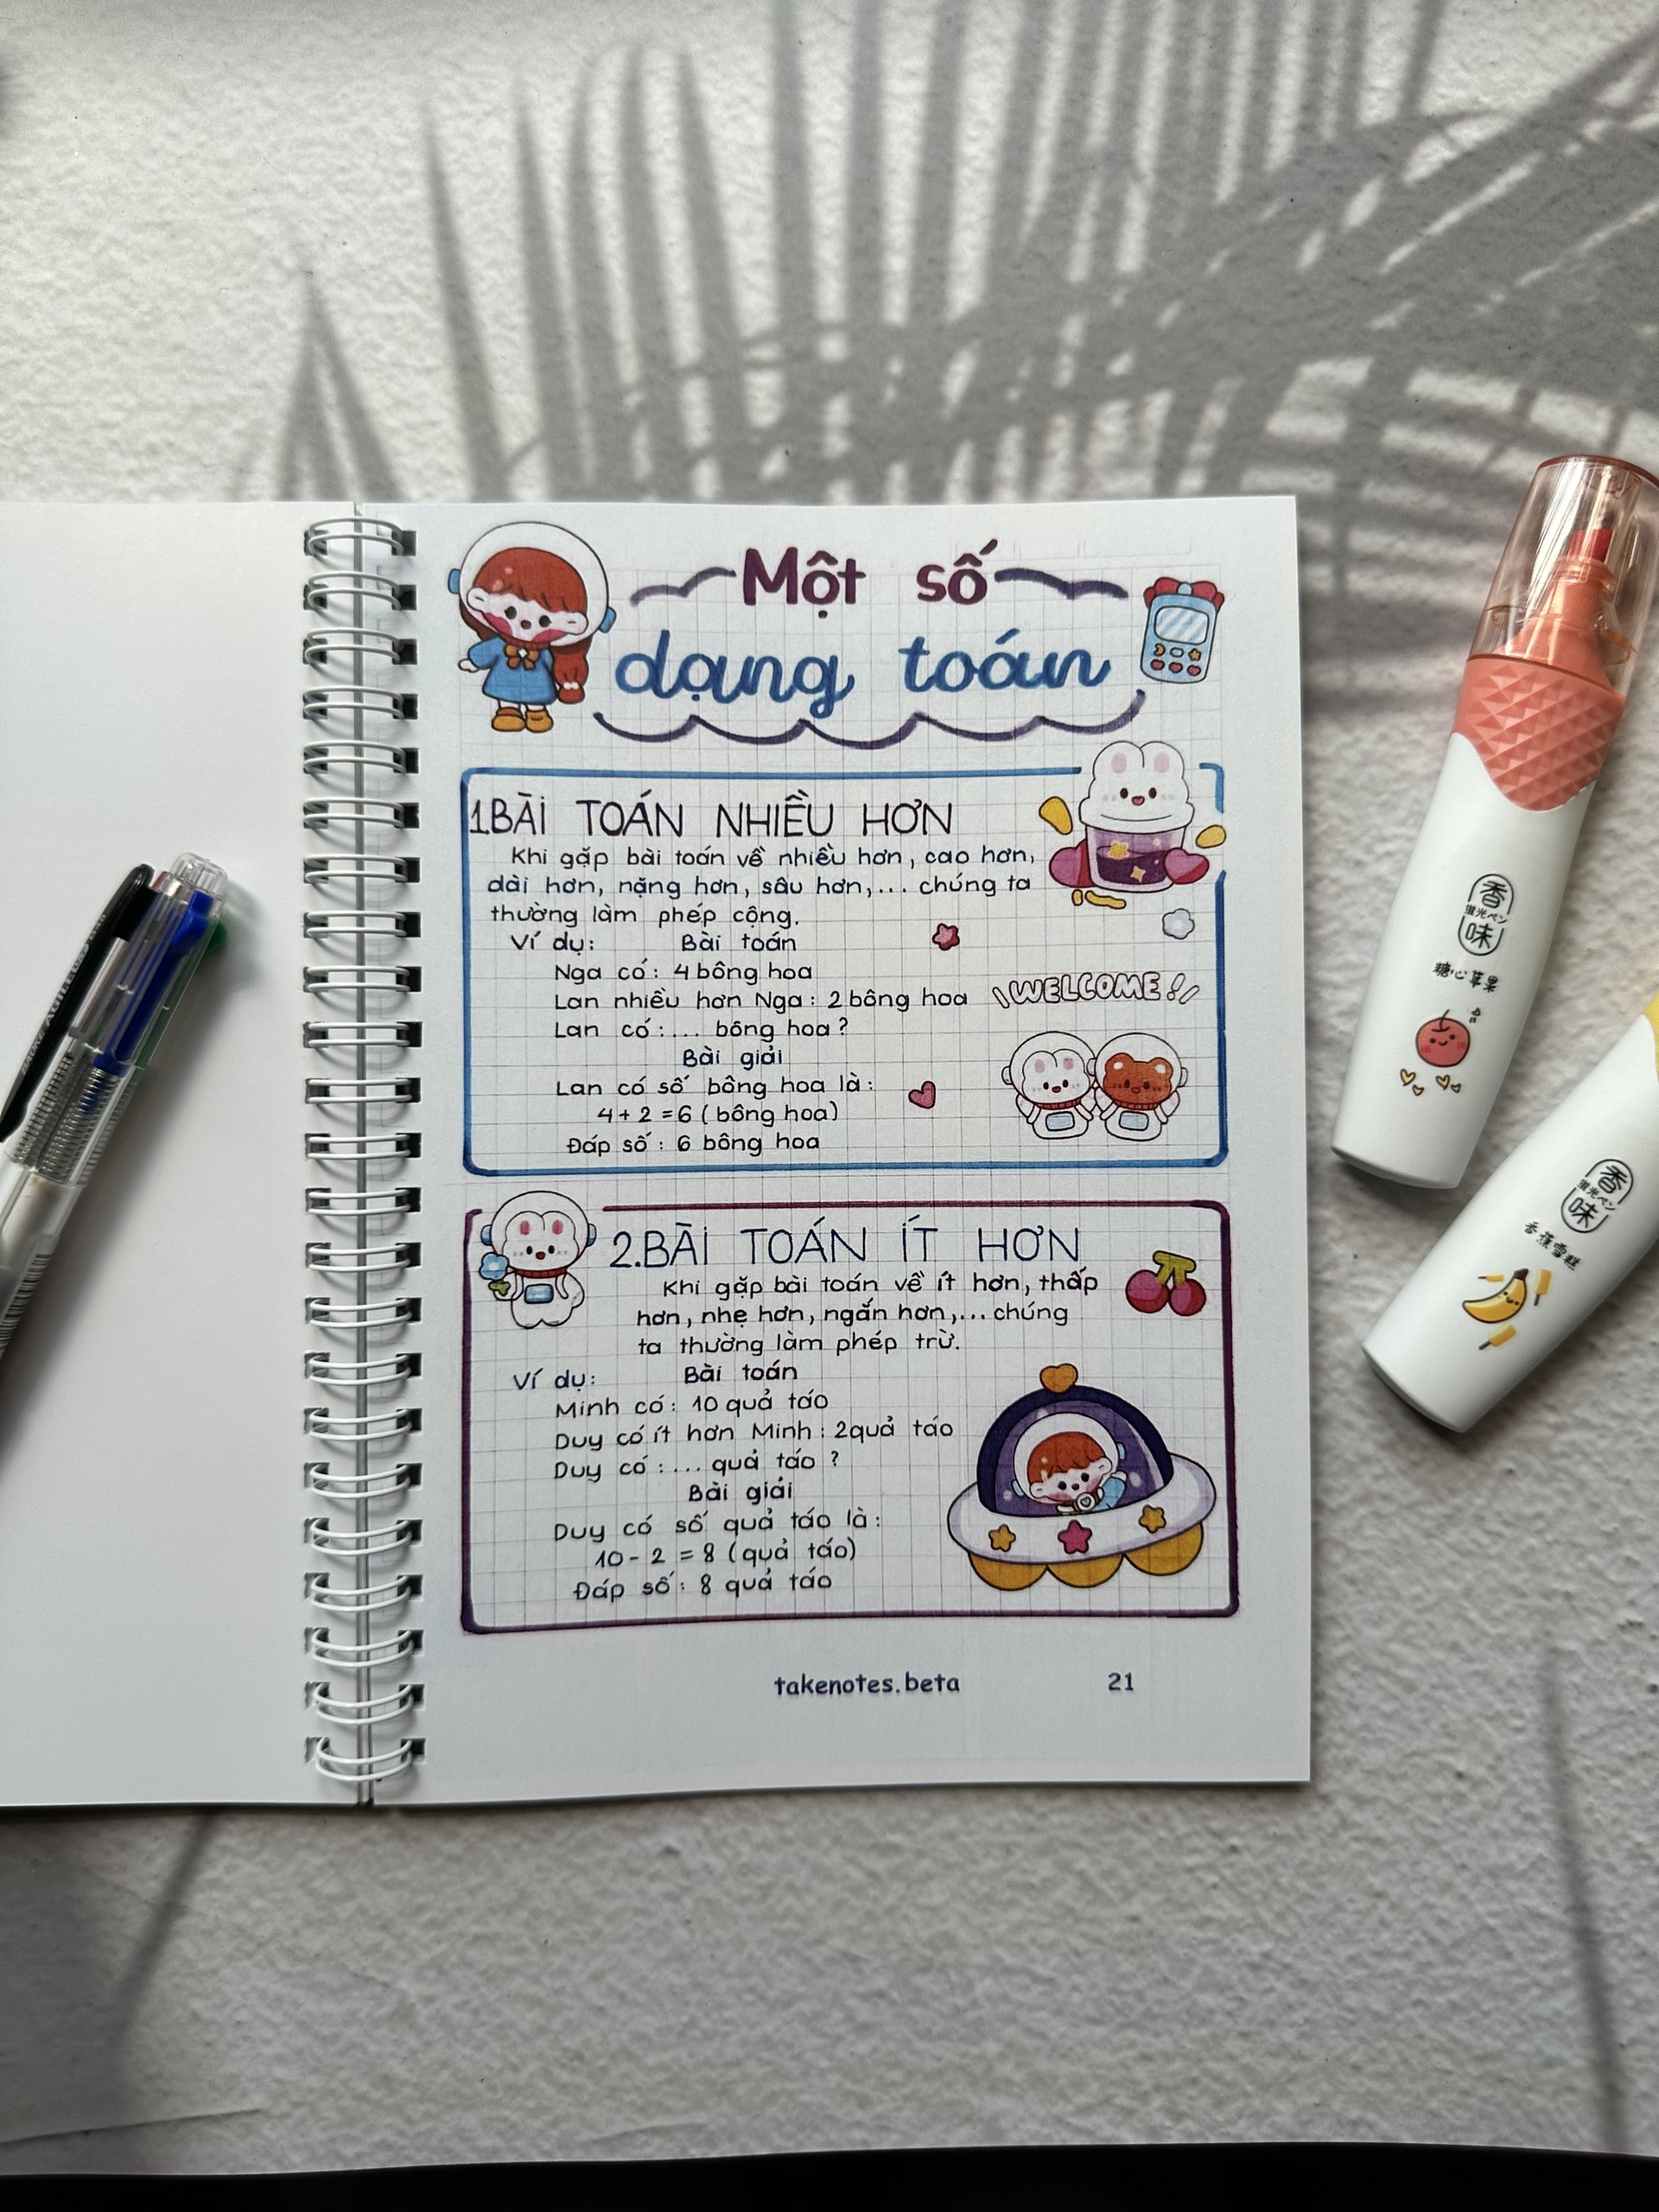 Một số
dạng toán
1.BÀI TOÁN NHIỀU HƠN
Khi gặp bài toán về nhiều hơn, cao hơn,
dài hơn, nặng hơn, sâu hơn,... chúng ta
thường làm phép cộng.
Ví dụ: Bài toán
Nga có: 4 bông hoa
Lan nhiều hơn Nga: 2 bông hoa
Lan có:... bông hoa?
Bài giải
Lan có số bông hoa là:
4+2=6 (bông hoa)
Đáp số: 6 bông hoa
WELCOME!
2.BÀI TOÁN ÍT HƠN
Khi gặp bài toán về ít hơn, thấp
hơn, nhẹ hơn, ngắn hơn,... chúng
ta thường làm phép trừ.
Ví dụ: Bài toán
Minh có: 10 quả táo
Duy có ít hơn Minh: 2quả táo
Duy có:... quả táo ?
Bài giải
Duy có số quả táo là:
10 - 2 = 8 (quả táo)
Đáp số: 8 quả táo
takenotes.beta 21
香
蛍光ペン
味
糖心苹果
香
蛍光ペン
味
香蕉雪糕